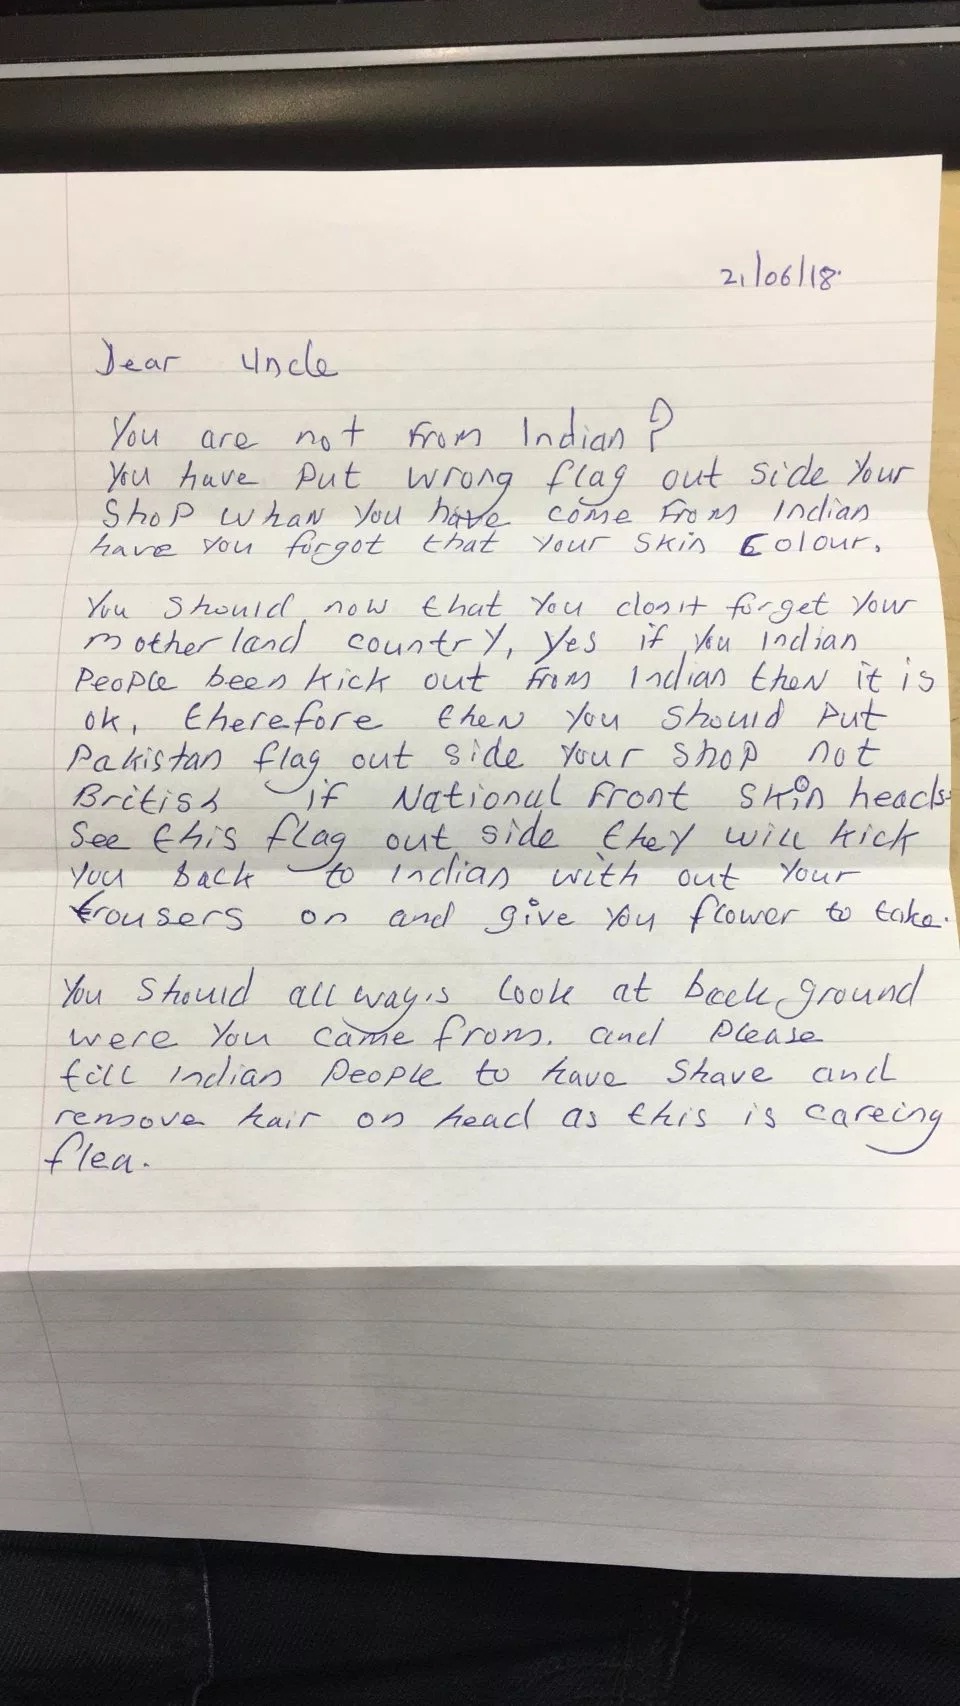 21/06/18.
Dear Uncle
You are not from Indian?
You have put wrong flag out side Your
Shop whan you have come from Indian
have you forgot that your skin Colour.
You should now that you don't forget your
mother land country, yes if you Indian
People been kick out from Indian then it is
ok, therefore then you should put
Pakistan flag out side your shop not
British if National Front Skin heads
See this flag out side they will kick
you back to Indian with out your
trousers on and give you flower to take.
You should all ways look at back ground
were you came from. and please
tell Indian people to have shave and
remove hair on head as this is careing
flea.